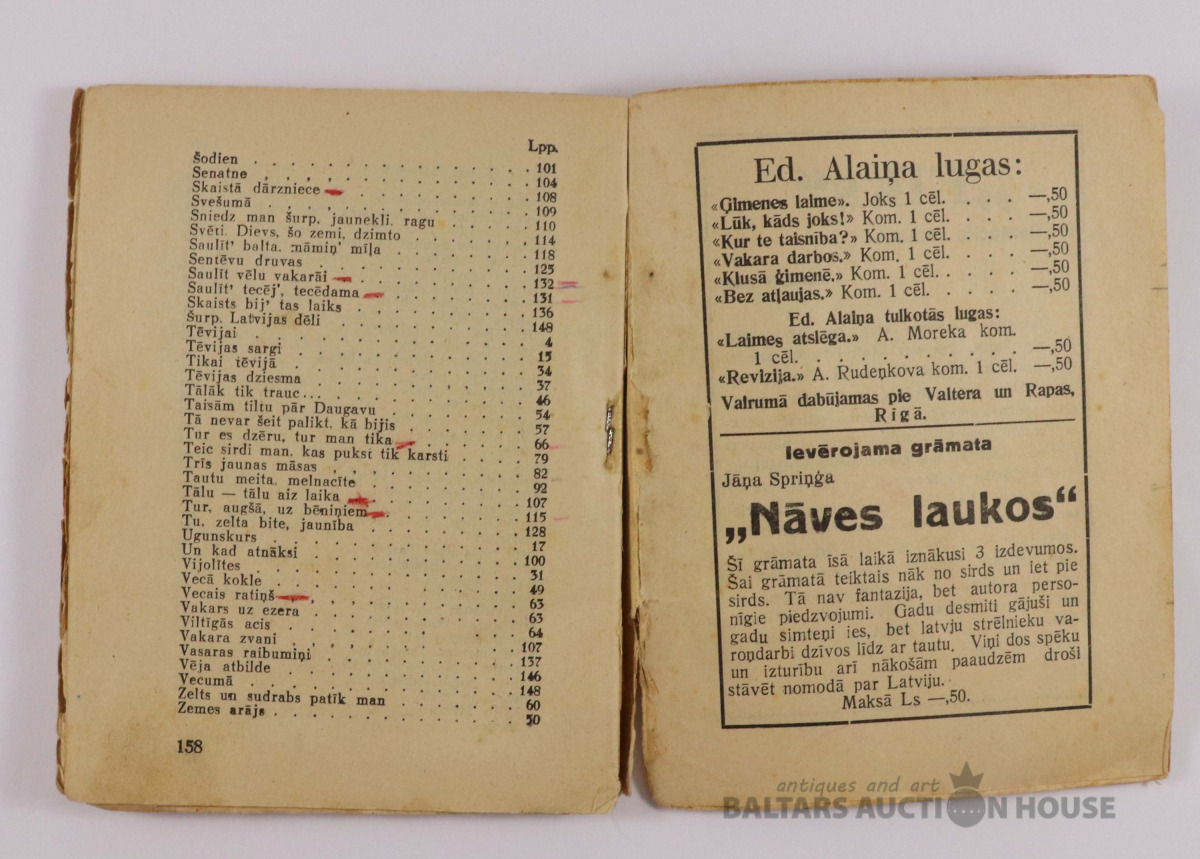 Lpp.
Šodien . . . . . . . . . . 101
Senatne . . . . . . . . . . 104
Skaistā dārzniece . . . . . . . 108
Svešumā . . . . . . . . . . 109
Sniedz man šurp, jaunekli, ragu . . . . 110
Svētī, Dievs, šo zemi, dzimto . . . . . 114
Saulīt' balta, māmiņ' mīļa . . . . . 118
Sentēvu druvas . . . . . . . . 125
Saulīt vēlu vakarāi . . . . . . . 132
Saulīt' tecēj', tecēdama . . . . . . 131
Skaists bij' tas laiks . . . . . . . 136
Šurp, Latvijas dēli . . . . . . . 148
Tēvijai . . . . . . . . . . 4
Tēvijas sargi . . . . . . . . . 15
Tikai tēvijā . . . . . . . . . 34
Tēvijas dziesma . . . . . . . . 37
Tālāk tik trauc... . . . . . . . . 46
Taisām tiltu pār Daugavu . . . . . . 54
Tā nevar šeit palikt, kā bijis . . . . . 57
Tur es dzēru, tur man tika . . . . . 66
Teic sirdi man, kas pukst tik karsti . . . 79
Trīs jaunas māsas . . . . . . . 82
Tautu meita, melnacīte . . . . . . 92
Tālu — tālu aiz laika . . . . . . 107
Tur, augšā, uz bēniņiem . . . . . . 115
Tu, zelta bite, jaunība . . . . . . 128
Ugunskurs . . . . . . . . . 17
Un kad atnāksi . . . . . . . . 100
Vijolītes . . . . . . . . . . 31
Vecā kokle . . . . . . . . . 49
Vecais ratiņš . . . . . . . . 63
Vakars uz ezera . . . . . . . . 63
Viltīgās acis . . . . . . . . . 64
Vakara zvani . . . . . . . . . 107
Vasaras raibumiņi . . . . . . . 137
Vēja atbilde . . . . . . . . . 146
Vecumā . . . . . . . . . . 148
Zelts un sudrabs patīk man . . . . . 60
Zemes arājs . . . . . . . . . 50
158
Ed. Alaiņa lugas:
«Ģimenes laime». Joks 1 cēl. . . . . —,50
«Lūk, kāds joks!» Kom. 1 cēl. . . . . —,50
«Kur te taisnība?» Kom. 1 cēl. . . . . —,50
«Vakara darbos.» Kom. 1 cēl. . . . . —,50
«Klusā ģimenē.» Kom. 1 cēl. . . . . . —,50
«Bez atļaujas.» Kom. 1 cēl. . . . . . —,50
Ed. Alaiņa tulkotās lugas:
«Laimes atslēga.» A. Moreka kom.
1 cēl. . . . . . . . . . . —,50
«Revizija.» A. Rudeņkova kom. 1 cēl. . —,50
Vairumā dabūjamas pie Valtera un Rapas,
Rīgā.
Ievērojama grāmata
Jāņa Spriņģa
„Nāves laukos“
Šī grāmata īsā laikā iznākusi 3 izdevumos.
Šai grāmatā teiktais nāk no sirds un iet pie
sirds. Tā nav fantazija, bet autora perso-
nīgie piedzvojumi. Gadu desmiti gājuši un
gadu simteņi ies, bet latvju strēlnieku va-
roņdarbi dzīvos līdz ar tautu. Viņi dos spēku
un izturību arī nākošām paaudzēm droši
stāvēt nomodā par Latviju.
Maksā Ls —,50.
antiques and art
BALTARS AUCTION HOUSE